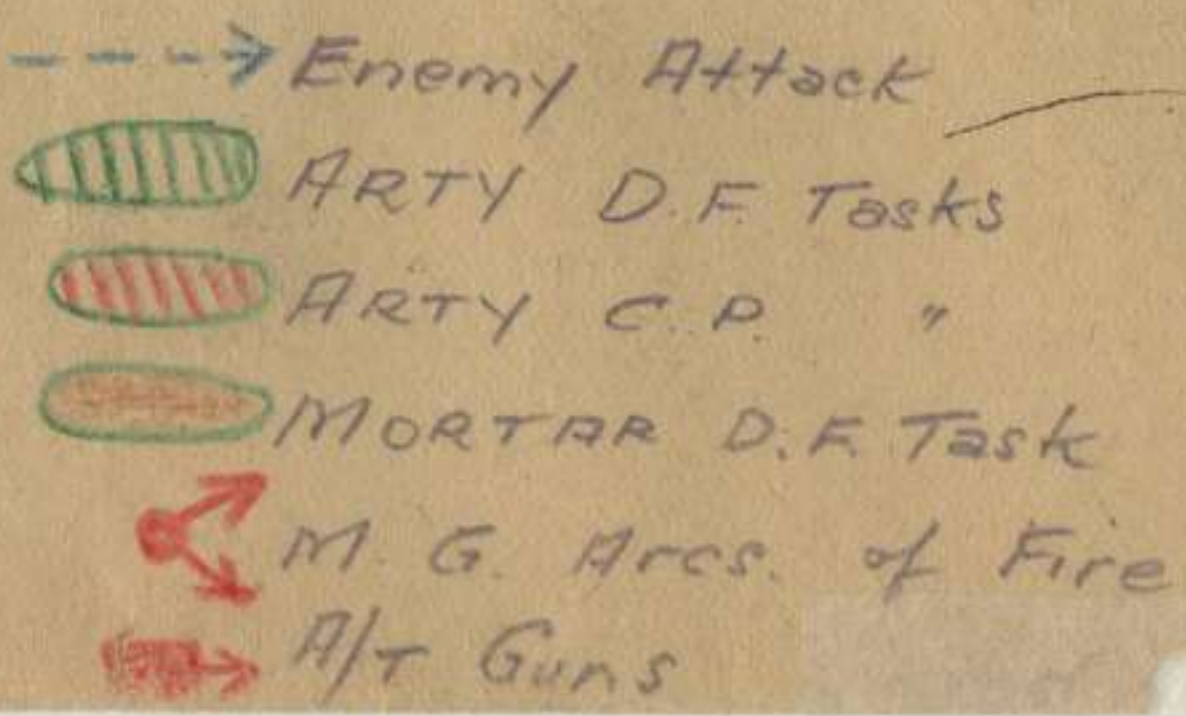 Enemy Attack
ARTY D.F. Tasks
ARTY C.P. "
MORTAR D.F. Task
M.G. Arcs. of Fire
A/T Guns